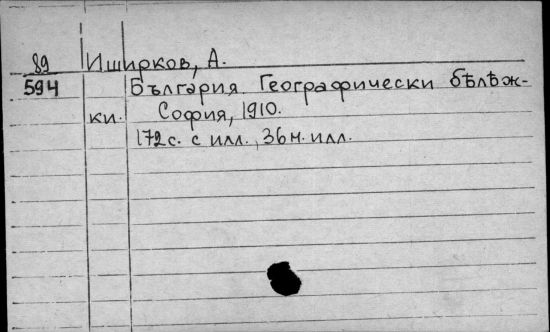 89 Иширков, А.
594 България. Географически бѣлѣж-
ки. София, 1910.
172 с. с илл., 36 н. илл.